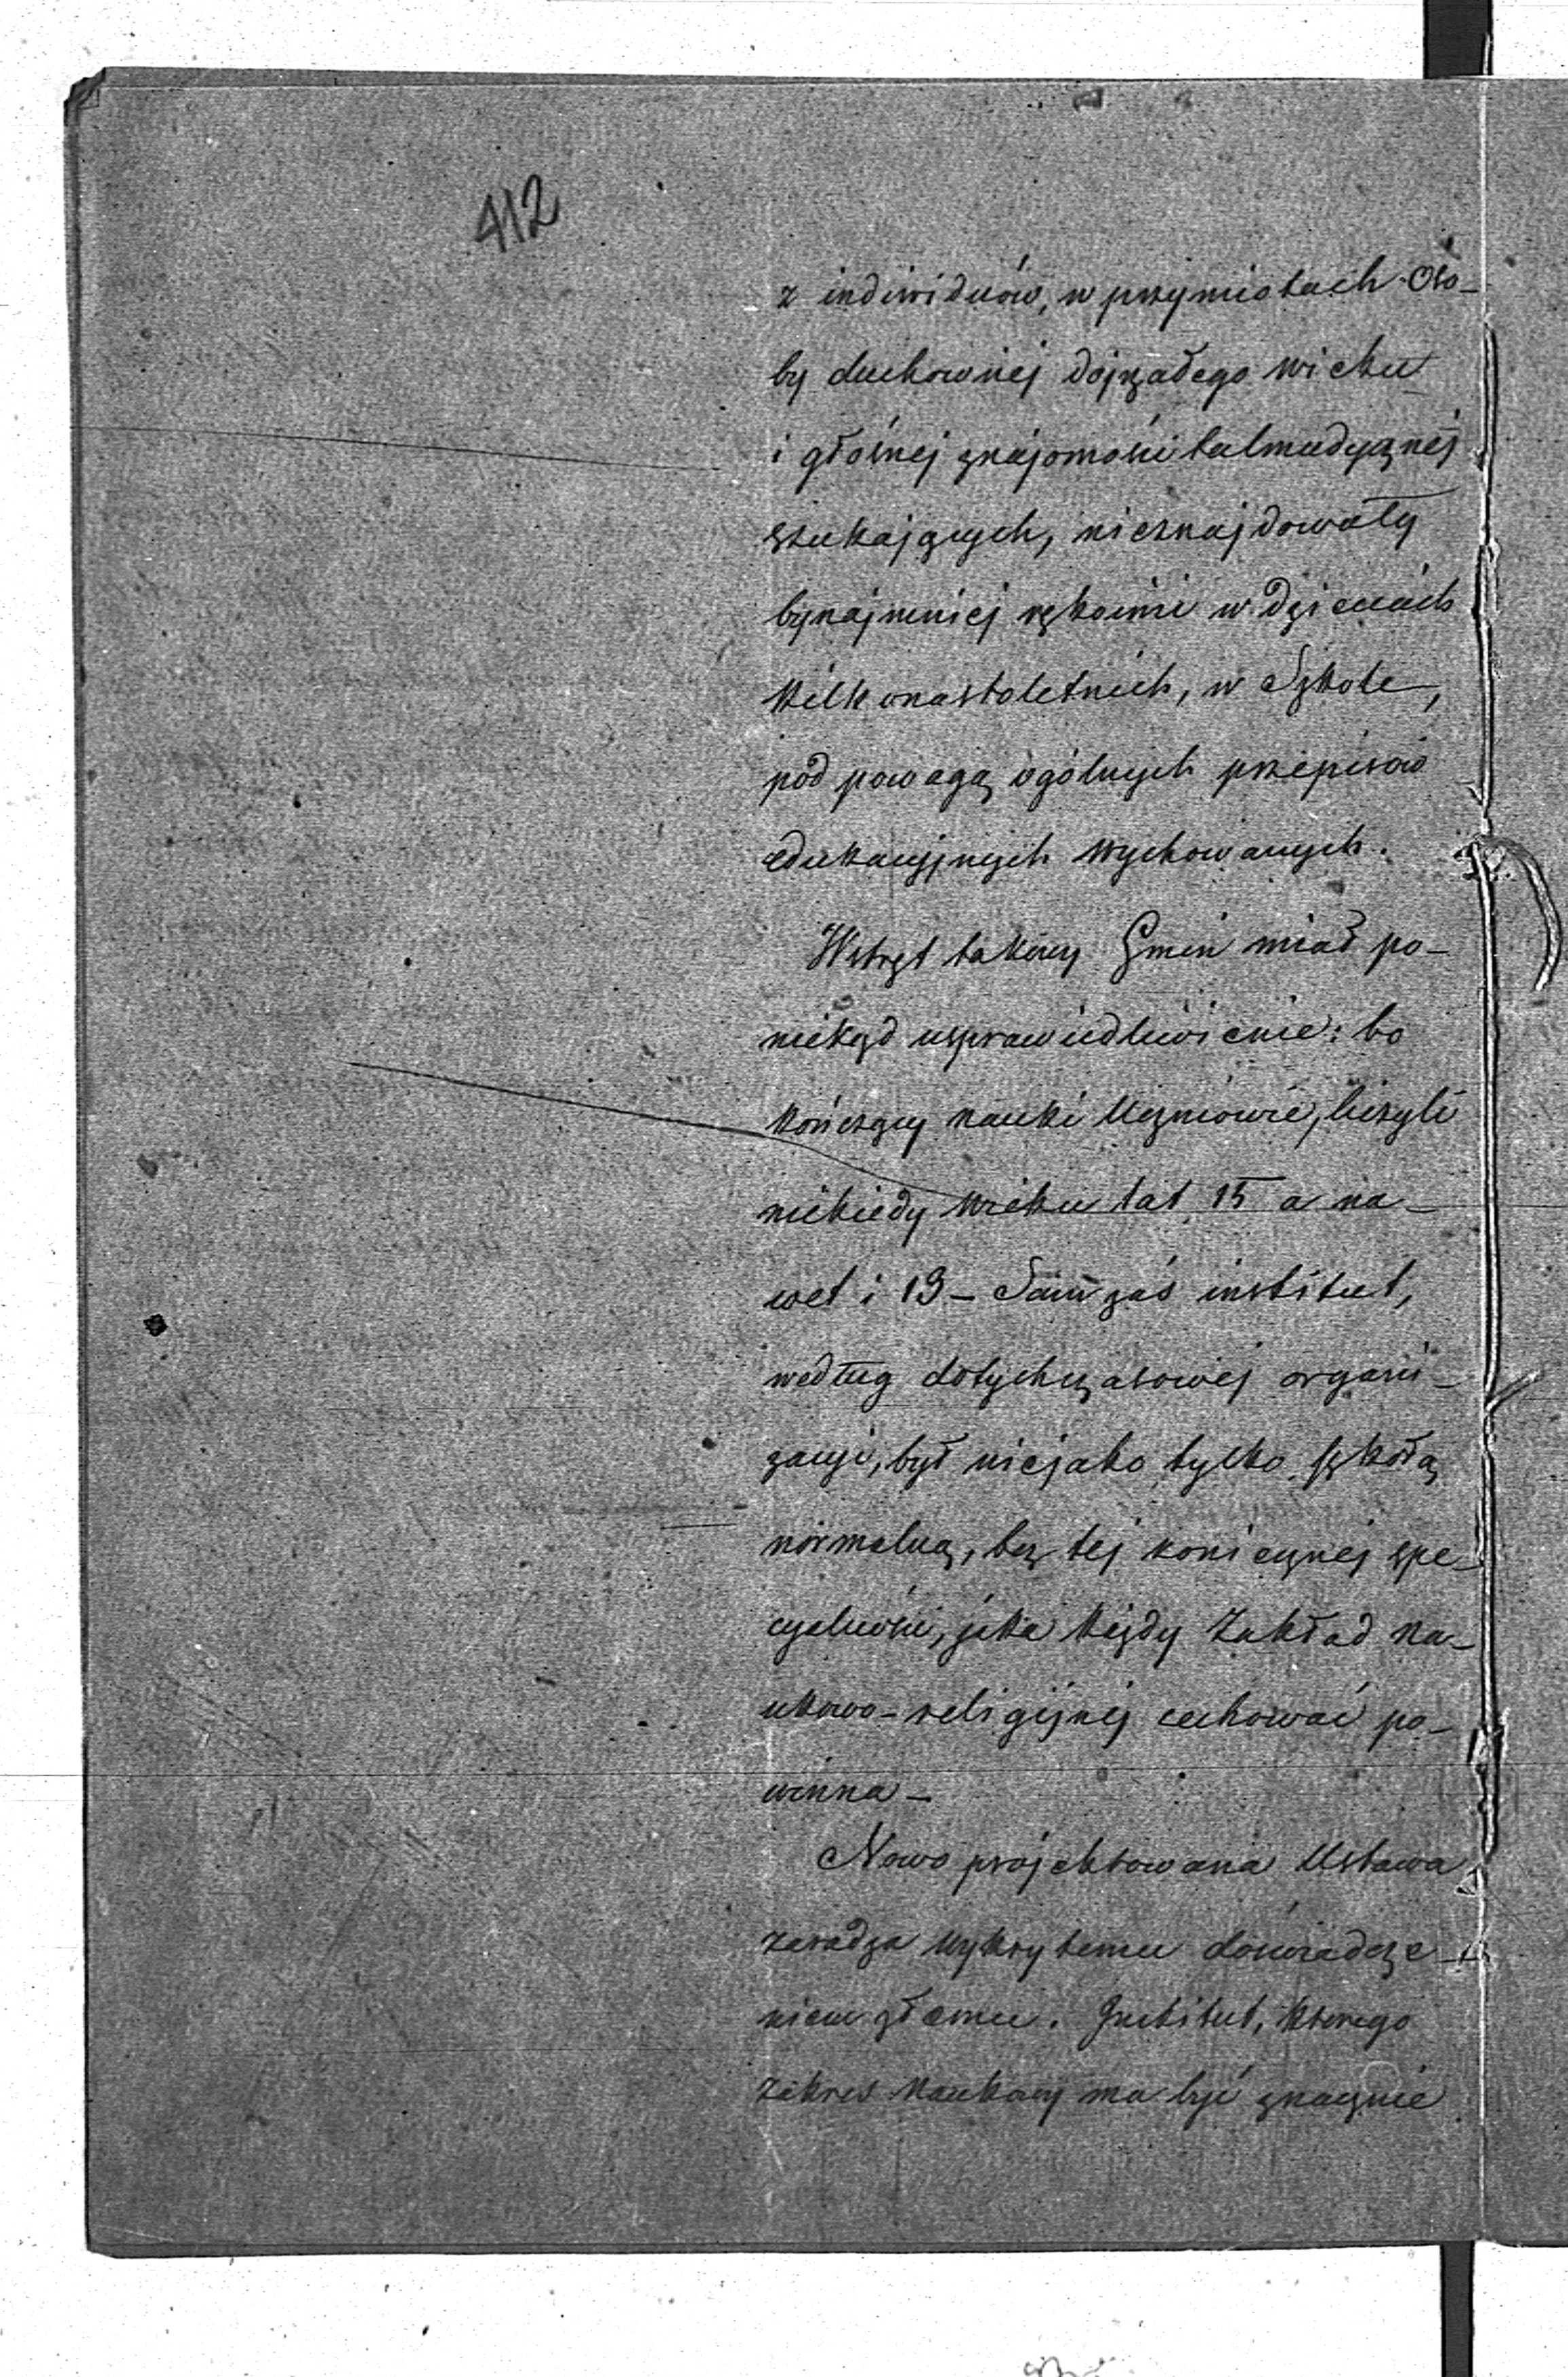 412
z indiwiduów, w przymiotach Oso-
by duchownej dojrzałego wieku
i głośnej znajomości talmudycznej
szukających, nieznajdowały
bynajmniej rękojmi w dzieciach
kilkonastoletnich, w Szkole,
pod powagą ogólnych przepisów
edukacyjnych wychowanych.
Wstręt takowy Gmin miał po-
niekąd usprawiedliwienie: bo
kończący nauki Uczniowie, liczyli
niekiedy wieku lat 15 a na-
wet i 13 - Sam zaś institut,
według dotychczasowej organi-
zacyi, był niejako tylko szkołą
normalną, bez tej koniecznej spe-
cyalności, jaka każdy Zakład na-
ukowo-religijnej cechować po-
winna -
Nowo projektowana Ustawa
zaradza wykrytemu doświadcze-
niem złemu. Institut, którego
zakres naukowy ma być znacznie